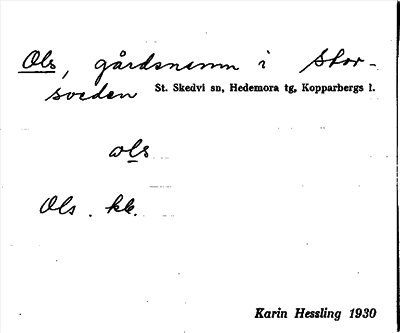 Ols, gårdsnamn i Stor-
sveden St. Skedvi sn, Hedemora tg, Kopparbergs l.
ɷls
Ols. kb.
Karin Hessling 1930